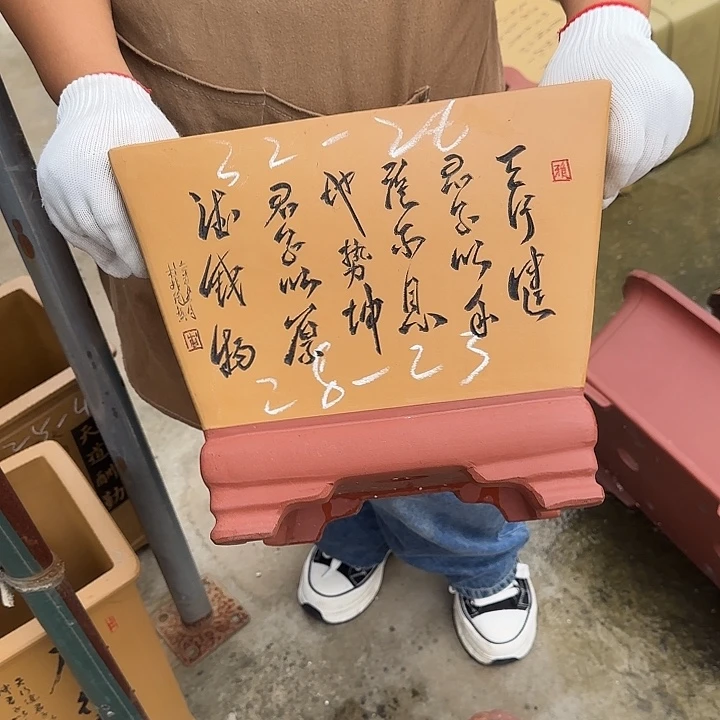 32-26
天行健
君子以自
强不息
地勢坤
君子以厚
德载物
28-23
天道酬勤